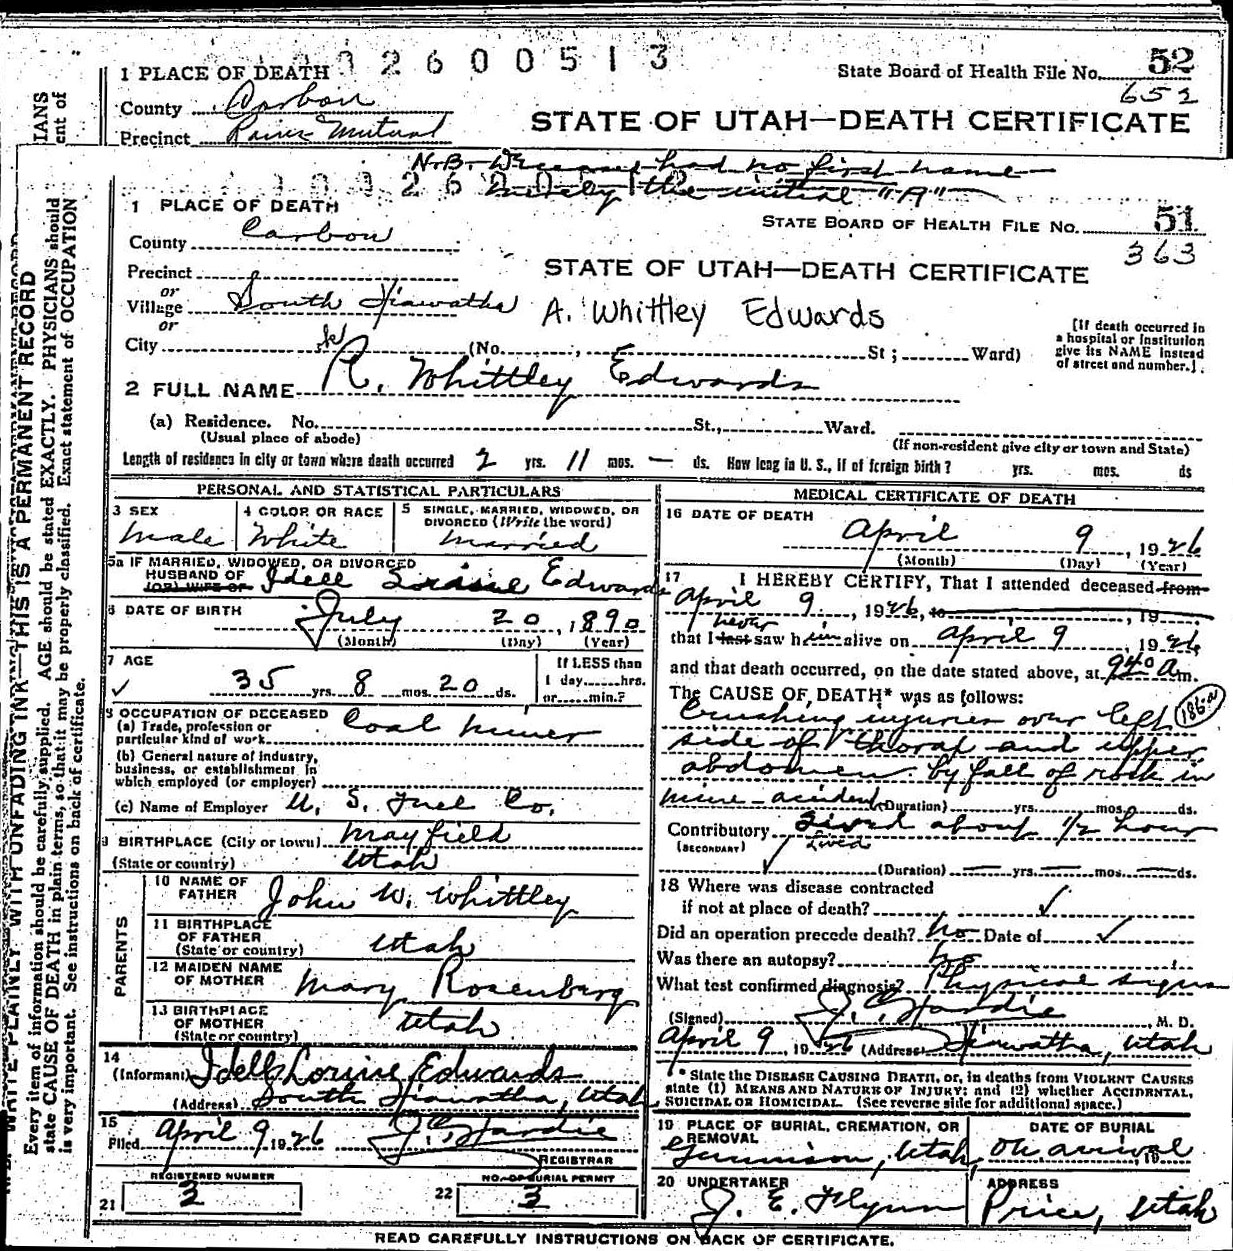 2600513
1 PLACE OF DEATH
State Board of Health File No. 52
County Carbon
652
Precinct Rains Mutual
STATE OF UTAH—DEATH CERTIFICATE
N.B. Deceased had no first name
merely the initial "A"
1 PLACE OF DEATH
STATE BOARD OF HEALTH FILE NO. 51
County Carbon
363
Precinct
STATE OF UTAH—DEATH CERTIFICATE
or
Village South Hiawatha
A. Whittley Edwards
or
City (No. , St; Ward)
[If death occurred in
a hospital or institution
give its NAME instead
of street and number.]
2 FULL NAME R. Whittley Edwards
(a) Residence. No. St., Ward.
(Usual place of abode)
(If non-resident give city or town and State)
Length of residence in city or town where death occurred 2 yrs. 11 mos. — ds. How long in U. S., if of foreign birth? yrs. mos. ds
PERSONAL AND STATISTICAL PARTICULARS
3 SEX
Male
4 COLOR OR RACE
White
5 SINGLE, MARRIED, WIDOWED, OR
DIVORCED (Write the word)
Married
5a IF MARRIED, WIDOWED, OR DIVORCED
HUSBAND OF
(OR) WIFE OF Idell Edwards
6 DATE OF BIRTH July 20, 1890
(Month) (Day) (Year)
7 AGE
35 yrs. 8 mos. 20 ds.
If LESS than
1 day......hrs.
or......min.?
8 OCCUPATION OF DECEASED
(a) Trade, profession or
particular kind of work Coal Miner
(b) General nature of industry,
business, or establishment in
which employed (or employer)
(c) Name of Employer U. S. Fuel Co.
9 BIRTHPLACE (City or town) Mayfield
(State or country) Utah
PARENTS
10 NAME OF
FATHER John W. Whittley
11 BIRTHPLACE
OF FATHER
(State or country) Utah
12 MAIDEN NAME
OF MOTHER Mary Rosenberg
13 BIRTHPLACE
OF MOTHER
(State or country) Utah
14
(Informant) Idell Louise Edwards
(Address) South Hiawatha, Utah
15
Filed April 9 1926 J. C. Hardie
REGISTRAR
REGISTERED NUMBER
21 2
NO. OF BURIAL PERMIT
22 3
MEDICAL CERTIFICATE OF DEATH
16 DATE OF DEATH
April 9, 1926
(Month) (Day) (Year)
17 I HEREBY CERTIFY, That I attended deceased from
April 9, 1926, to , 19
never
that I last saw him alive on April 9 1926,
and that death occurred, on the date stated above, at 940 a m.
The CAUSE OF DEATH* was as follows:
186a
Crushing injuries over left
side of thorax and upper
abdomen by fall of rock in
mine - acident (Duration) yrs. mos. ds.
Contributory Lived about 1/2 hour
(SECONDARY) Lived
(Duration) yrs. mos. ds.
18 Where was disease contracted
if not at place of death?
Did an operation precede death? No Date of
Was there an autopsy? No
What test confirmed diagnosis? Physical signs
(Signed) J. C. Hardie, M. D.
April 9 1926 (Address) Hiawatha, Utah
* State the DISEASE CAUSING DEATH, or, in deaths from VIOLENT CAUSES
state (1) MEANS AND NATURE OF INJURY; and (2) whether ACCIDENTAL,
SUICIDAL OR HOMICIDAL. (See reverse side for additional space.)
19 PLACE OF BURIAL, CREMATION, OR
REMOVAL
Gunnison, Utah,
DATE OF BURIAL
On arrival, 19
20 UNDERTAKER
J. E. Flynn
ADDRESS
Price, Utah
READ CAREFULLY INSTRUCTIONS ON BACK OF CERTIFICATE.
WRITE PLAINLY WITH UNFADING INK—THIS IS A PERMANENT RECORD
Every item of information should be carefully supplied. AGE should be stated EXACTLY. PHYSICIANS should
state CAUSE OF DEATH in plain terms, so that it may be properly classified. Exact statement of OCCUPATION
is very important. See instructions on back of certificate.